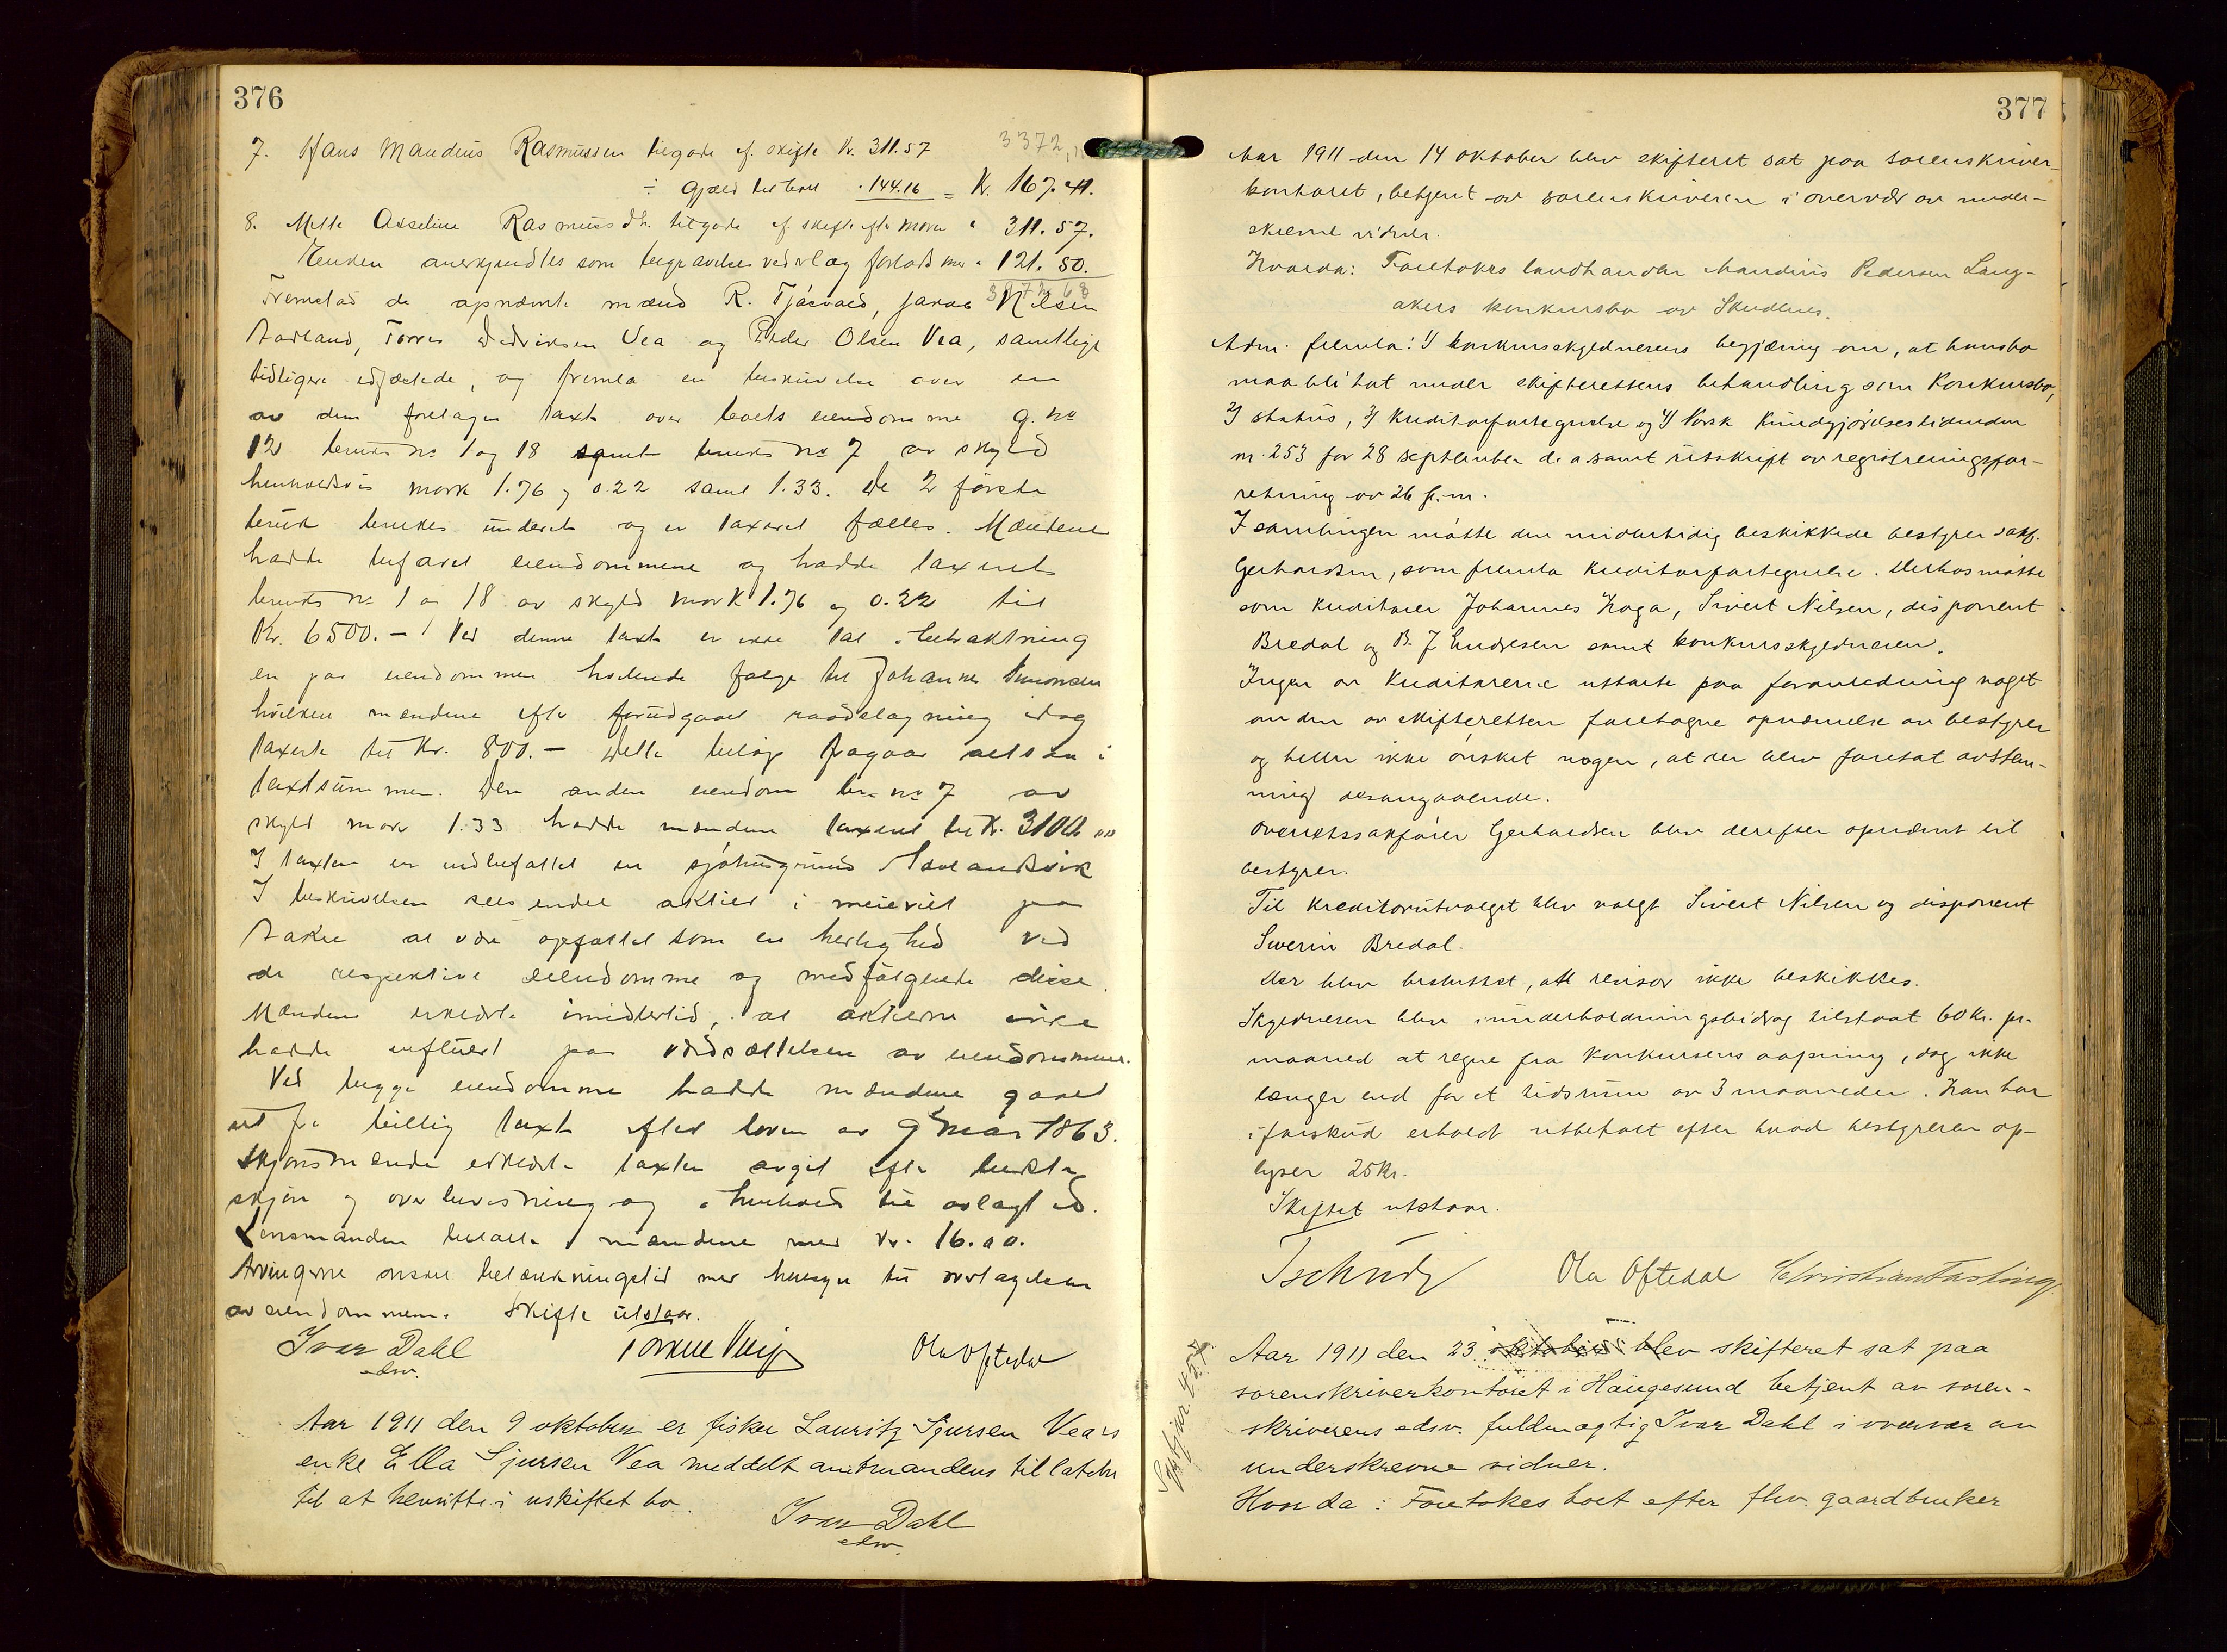 376
7. Hans Mandeus Rasmussen tilgode ef. skifte Kr. 311.57 3372,
÷ Gjæld til boet 144.16 = Kr. 167.41.
8. Mette Asseline Rasmusdtr. tilgode ef. skifte efter moren " 311.57.
Enken anerkjendtes som begravelsesvederlag forlods " 121.50.
3972 68
Fremstod de opnævnte mænd R. Tjøsvold, Jakob Nilsen
Aadland, Torres Didriksen Vea og Peder Olsen Vea, samtlige
tidligere edfæstede, og fremla en beskrivelse over en
av dem foretagen taxt over boets eiendomme g. no
12 bruks no 1 og 18 samt bruks no 7 av skyld
henholdsvis mark 1.76 og 0.22 samt 1.33. De 2 første
bruk brukes under et og er taxeret fælles. Mændene
hadde befaret eiendommene og hadde taxeret
bruks no 1 og 18 av skyld mark 1.76 og 0.22 til
Kr. 6500.- Ved denne taxt er ikke tat i betraktning
en paa eiendommen heftende følge til Johannes Simonsen
hvilken mændene efter forudgaaet raadslagning idag
taxerte til Kr. 800.- Dette beløp fragaar altsaa i
taxtsummen. Den anden eiendom br. no 7 av
skyld mark 1.33 hadde mændene taxeret til Kr. 3100.00
I taxten er indbefattet en sjøhusgrund i Aadlandsvik
I beskrivelsen sees endel aktier i meieriet paa
Aakre at være opfattet som en herlighed ved
de respektive eiendomme og medfølgende disse.
Mændene erklærte imidlertid, at aktierne ikke
hadde influert paa værdsættelsen av eiendommene.
Ved begge eiendomme hadde mændene gaaet
ut fra billig taxt efter loven av 9 mai 1863.
Skjønsmændene erklærte taxten avgit efter bedste
skjøn og overbevisning og i henhold til avlagt ed.
Lensmanden betalte mændene med Kr. 16.00.
Arvingerne ønsket betænkningstid med hensyn til overtagelsen
av eiendommen. Skifte utstaar.
Ivar Dahl
edsv.
Ola Oftedal
Aar 1911 den 9 oktober er fisker Lauritz Sjursen Vea's
enke Ella Sjursen Vea meddelt amtmandens tillatelse
til at hensitte i uskiftet bo.
Ivar Dahl
edsv.
377
Aar 1911 den 14 oktober blev skifteret sat paa sorenskriver-
kontoret, betjent av sorenskriveren i overvær av under-
skrevne vidner.
Hvorda: Foretokes landhandler Mandius Pedersen Lang-
akers konkursbo av Skudenes.
Adm. fremla: 1) konkursskyldnerens begjæring om, at hans bo
maa bli tat under skifterettens behandling som konkursbo,
2) status, 3) kreditorfortegnelse og 4) Norsk Kundgjørelsestidende
nr. 253 for 28 september d. a. samt utskrift av registreringsfor-
retning av 26 f. m.
I samlingen møtte den midlertidig beskikkede bestyrer sakf.
Gerhardsen, som fremla kreditorfortegnelse. Derhos møtte
som kreditorer Johannes Haga, Sivert Nilsen, disponent
Bredal og B. J. Endresen samt konkursskyldneren.
Ingen av kreditorerne uttalte paa foranledning noget
om den av skifteretten foretagne opnævnelse av bestyrer
og heller ikke ønsket nogen, at der blev foretat avstem-
ning desangaaende.
Overretssakfører Gerhardsen blev derefter opnævnt til
bestyrer.
Til kreditorutvalget blev valgt Sivert Nilsen og disponent
Severin Bredal.
Der blev besluttet, at revisor ikke beskikkes.
Skyldneren blev i underholdningsbidrag tilstaat 60 kr. pr.
maaned at regne fra konkursens aapning, dog ikke
længer end for et tidsrum av 3 maaneder. Han har
i forskud erholdt utbetalt efter hvad bestyreren op-
lyser 25 kr.
Skiftet utstaar.
Tschudy Ola Oftedal Christian Fasting
Aar 1911 den 23 oktober blev skifteret sat paa
sorenskriverkontoret i Haugesund betjent av soren-
skriverens edsv. fuldmægtig Ivar Dahl i overvær av
underskrevne vidner.
Hvorda: Foretokes boet efter fhv. gaardbruker